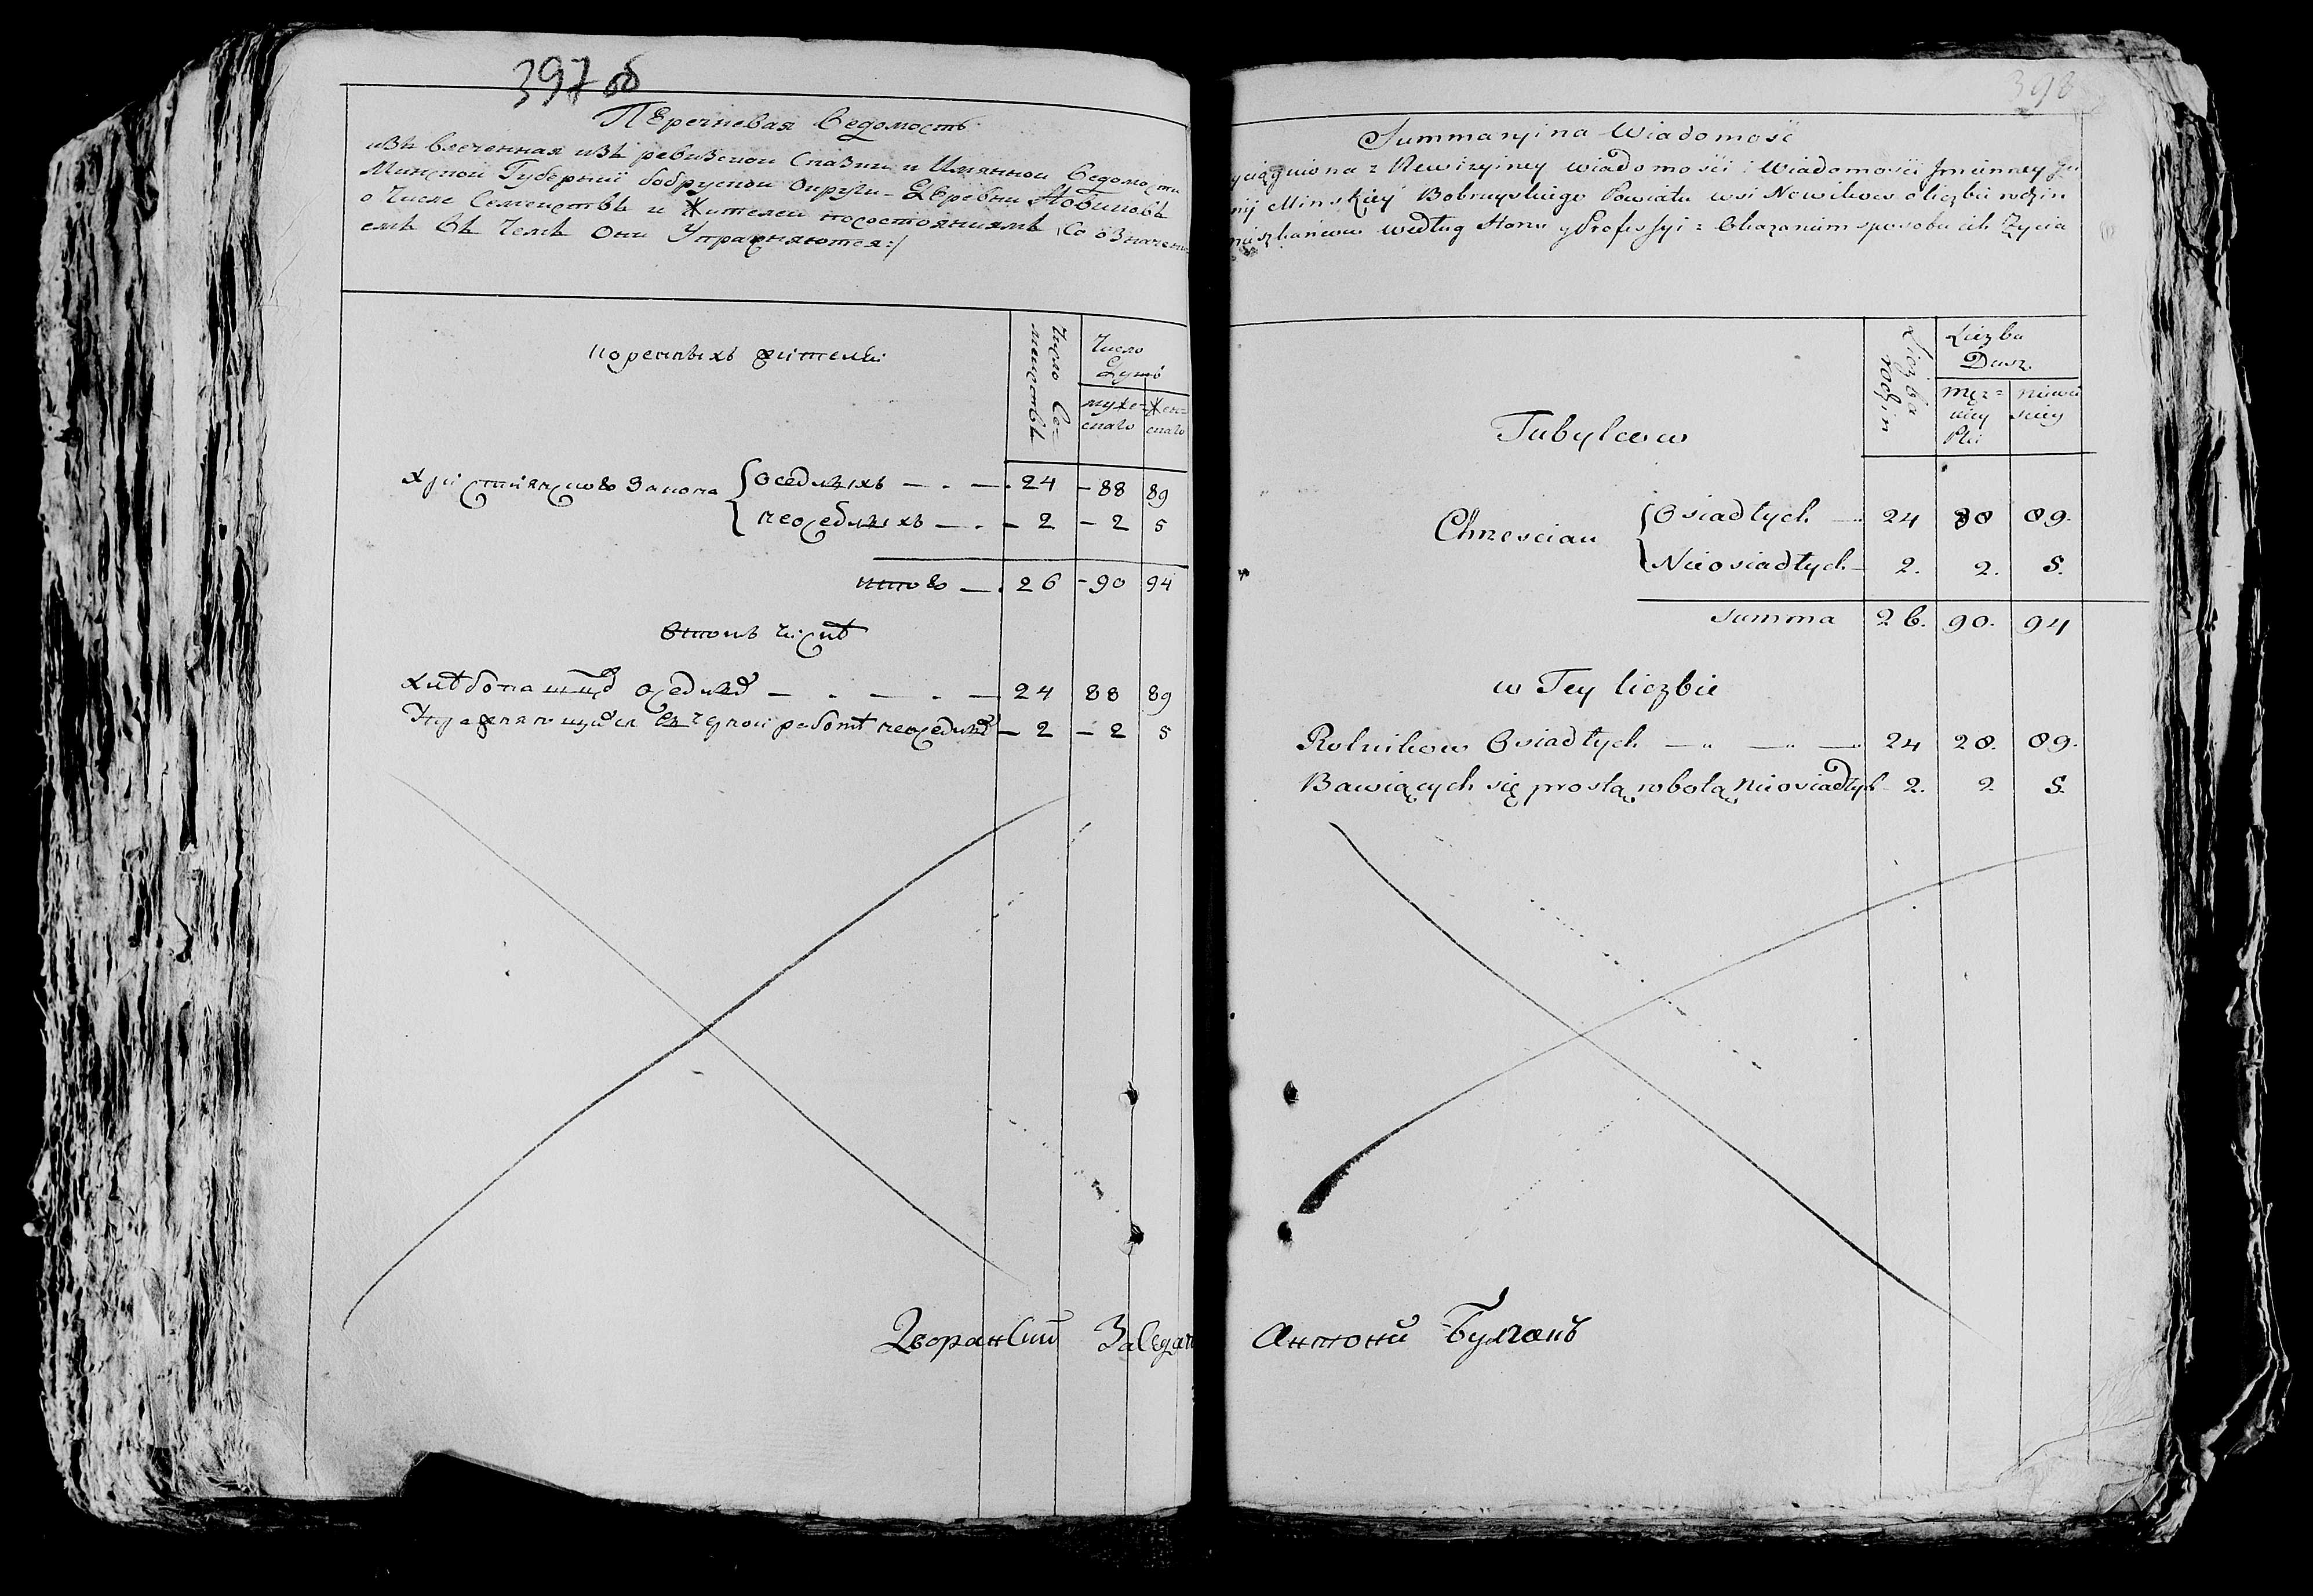 397 об
Перечневая Ведомость
извлеченная изъ ревизской Сказки и Имянной Ведомости
Минской Губернии бобруской Округи Деревни Новиковъ
о Числе Семействъ и Жителей посостояниямъ Со означени
емъ въ Чемъ Они Упражняются:/
коренныхъ жителей
Число Се-
мействъ
Число
Душъ
муже-
скаго
Жен-
скаго
Християнскова Закона
оседлыхъ — . — . 24 - 88 89
неоседлыхъ — . - 2 - 2 5
итого — . 26 - 90 94
втомъ числѣ
хлѣбопашцовъ оседлыхъ — . — . — 24 88 89
Упражняющихся въ черной работѣ неоседлыхъ — 2 — 2 5
Дворянский Заседат
398
Summaryina Wiadomość
yciągniona z Rewizyiney wiadomości i Wiadomości Jmienney Gu
nij Minskiey Bobruyskiego Powiatu wsi Nowikow o liczbie rodzin
mieszkańcow według Stanu y Professyi z Okazaniem sposobu ich Życia
Liczba
rodzin
Liezba
Dusz.
męz=
kiey
Płci
niewie
skiey
Tubylcow
Chrzescian
Osiadłych — 24 88 89.
Nieosiadłych — 2. 2. 5.
Summa 26. 90. 94
w Tey liczbie
Rolnikow Osiadłych — „ — „ — 24 28. 89.
Bawiących się prostą robotą Nieosiadłych 2. 2. 5.
Антони Булгакъ